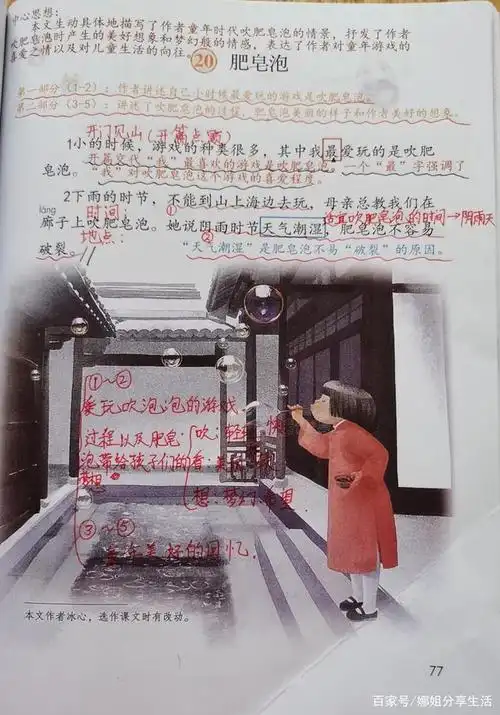 中心思想：
本文生动具体地描写了作者童年时代吹肥皂泡的情景，抒发了作者
吹肥皂泡时产生的美好想象和梦幻般的情感，表达了作者对童年游戏的
喜爱之情以及对儿童生活的向往。
20 肥皂泡
第一部分（1-2）：作者讲述自己小时候最爱玩的游戏是吹肥皂泡。
第二部分（3-5）：讲述了吹肥皂泡的过程，肥皂泡美丽的样子和作者美好的想象。
开门见山（开篇点题）
1小的时候，游戏的种类很多，其中我最爱玩的是吹肥
开篇交代“我”最喜欢的游戏是吹肥皂泡。
皂泡。
一个“最”字强调了
“我”对吹肥皂泡这个游戏的喜爱程度。
2下雨的时节，不能到山上海边去玩，母亲总教我们在
láng
时间 ①
廊子上吹肥皂泡。她说阴雨时节天气潮湿，肥皂泡不容易
吹肥皂泡的时间→阴雨天
地点： ②
破裂。
“天气潮湿”是肥皂泡不易“破裂”的原因。
①～②
爱玩吹泡泡的游戏
过程以及肥皂
吹：轻
泡带给孩子们的
看：美
梦想。
想：梦幻 希望
③～⑤
美好的回忆.
本文作者冰心，选作课文时有改动。
77
百家号/娜姐分享生活